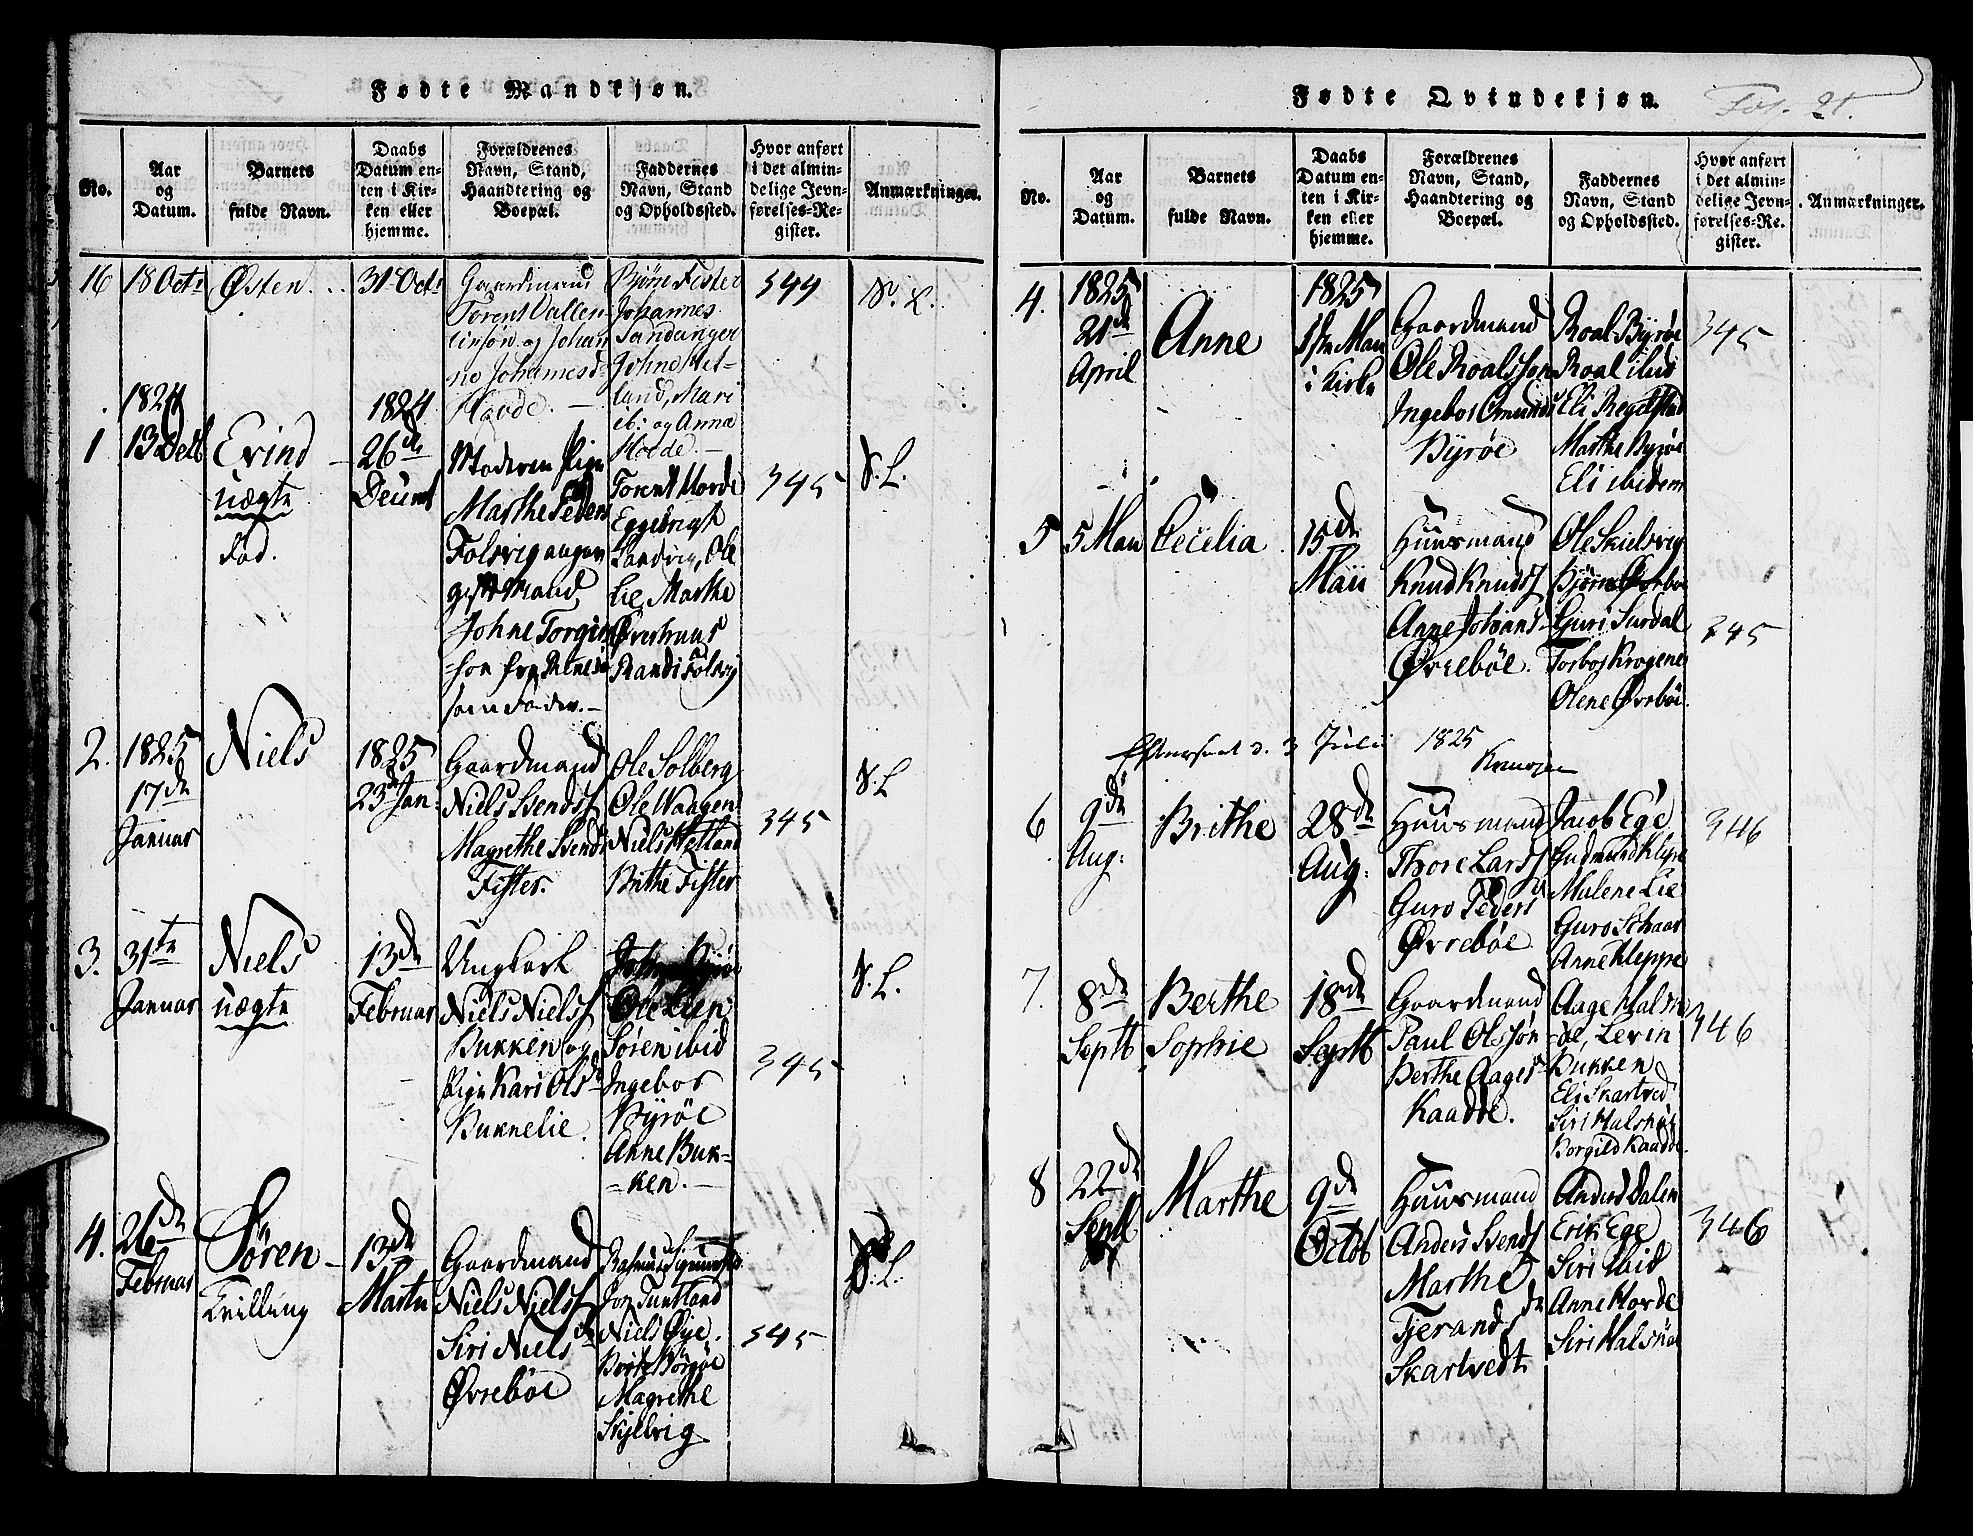 Fødte Mandkjøn.
No.
Aar
og
Datum.
Barnets
fulde Navn.
Daabs
Datum en-
ten i Kir-
ken eller
hjemme.
Forældrenes
Navn, Stand,
Haandtering og
Boepæl.
Faddernes
Navn, Stand
og Opholdssted.
Hvor anført
i det almin-
delige Jevn-
førelses-Re-
gister.
Anmærkninger.
16
18 Octr
Østen
31 Octr
Gaardmand
Torent Vallen-
tinsøn og Johan
ne Johannesd.
Hovde.
Bjørn Fister
Johannes
Sandanger
Johne Met-
land, Mari
ib: og Anna
Hovde.
344
1
1824
13 Decb
Evind
uægte
død.
1824
26de
Decemb
Moderen Pige
Marthe Peders
Folsvig angav
gift Mand
Johne Torgin
som Fader.
Torent Horde
Eggebrigt
Sandvig, Ole
Lie, Marthe
Randi Folsvig
345
S.L.
2.
1825
17de
Januar
Niels
1825
23de Jan
Gaardmand
Niels Svends
Magrethe Svends
Fister.
Ole Solberg
Ole Waagen
Niels Hetland
Brithe Fister
345
S.L
3.
31te
Januar
Niels
uægte
13de
Februar
Ungkarl
Niels Niels
Bukken og
Pige Kari Olsd
Buknelie.
Ole Lien
Søren ibid
Ingebor
Byrøe
Anne Buk-
-ken.
345
S.L.
4.
26de
Februar
Søren
Tvilling
13de
Martii
Gaardmand
Niels Niels
Siri Niels
Øvrebøe
Niels Øye.
Magrethe
Skjelvig
345
S.L.
Fødte Qvindekjøn.
Fol. 21.
No.
Aar
og
Datum.
Barnets
fulde Navn.
Daabs
Datum en-
ten i Kir-
ken eller
hjemme.
Forældrenes
Navn, Stand,
Haandtering og
Boepæl.
Faddernes
Navn, Stand
og Opholdssted.
Hvor anført
i det almin-
delige Jevn-
førelses-Re-
gister.
Anmærkninger.
4.
1825
21de
April
Anne
1825
1ste Maii
i Kirke
Gaardmand
Ole Roalssøn
Ingebor Omunds
Byrøe
Roal Byrøe
Roal ibid
Marthe Byrøe
Eli ibidem
345
5
5 Maii
Cecilia
15de
Maii
Huusmand
Knud Knuds
Anne Johans
Øvrebøe.
Ole Skielvig
Bjørn Øvrebøe
Guri Surdal
Torbor Krogene
Olene Øvrebøe.
345
Efterseet d. 3 Julii 1825
6
9de
Aug:
Brithe
28de
Aug.
Huusmand
Thore Lars
Guro Peders
Øvrebøe
Jacob Ege
Malene Lie
Guro Schaar
Anne Kleppe
346
7.
8de
Septb
Berthe
Sophie
18de
Septb
Gaardmand
Paul Olssøn
Berthe Aages
Kaadde.
Aage Halsn
-øe, Levin
Bukken
Eli Skartved
Siri Halsnøe
Borgild Kaadde.
346
8
22de
Septb
Marthe
9de
Octob
Huusmand
Anders Svends
Marthe
Tjerands
Skartvedt
Anders Dalen
Erik Ege
Siri ibid
Anne Horde
Siri Halsnøe
346